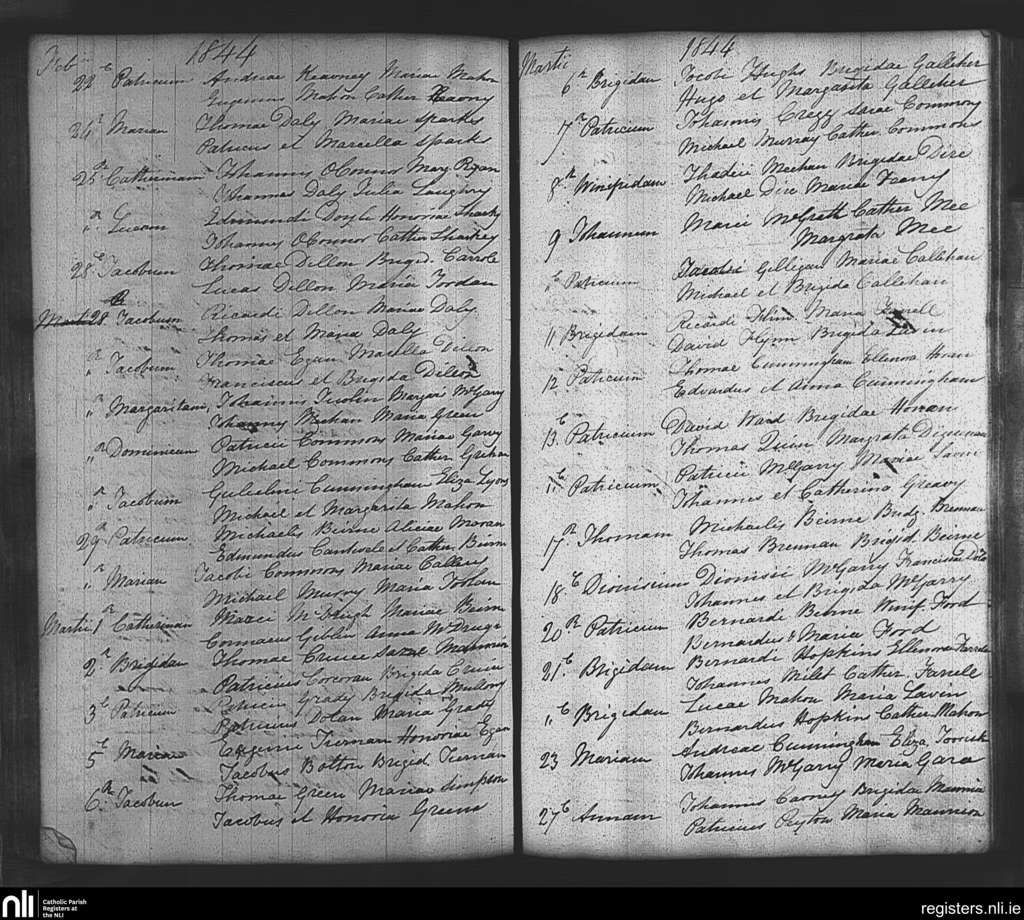 Feb 1844
22 Patricium Andreae Keavney Mariae Mahon
Eugenius Mahon Cather Keaveny
24 Mariam Thomae Daly Mariae Sparks
Patricus et Marcella Sparks
25 Catherinam Johannis OConnor Mary Ryan
Johannes Daly Julia
" Lucam Edmundi Doyle Honoriae Sharky
Johannes OConnor Cather Sharkey
28 Jacobum Thomae Dillon Brigd. Carrole
Lucas Dillon Maria Jordan
28 Jacobum Ricardi Dillon Mariae Daly
Thomas et Maria Daly
" Jacobum Thomae Egan Marcella Dillon
Franciscus et Brigida Dillon
" Margaritam, Johannis Margari McGarry
Johannes Maria Green
" Dominicum Patricii Commons Mariae Garvy
Michael Commons Cather
" Jacobum Gulielmi Cunningham Eliza Lyons
Michael et Margarita Mahon
29 Patricium Michaelis Beirne Aliciae Moran
Edmundus et Cather. Beirn
" Mariam Jacobi Commons Mariae Callery
Michael Murry Maria
Martii 1 Catherinam Mariae Beirn
Giblin Anna
2 Brigidam Thomae
Patricius Corcoran Brigida
3 Patricium Patricii Grady Brigida
Patricius Dolan Maria Grady
5 Mariae Eugenii Tiernan Honoriae Egan
Jacobus Bolton Brigid. Tiernan
6 Jacobum Thomae Green Mariae Simpson
Jacobus et Honoria Greene
Martii 1844
6 Brigidam Jacobi Hughs Brigidae Galleher
Hugo et Margarita Galleher
7 Patricium Johannis Cregg Sarae Commons
Michael Murray Cather. Commons
8 Winifridam Thadeii Meehan Brigidae Dire
Michael Dire Mariae
9 Johannem McGrath Cather Mee
Margrata Mee
" Patricium Jacobi Gilligan Mariae Callihan
Michael et Brigida Callehan
11 Brigidam Ricardi Maria Farrell
David Flynn Brigida Lavin
12 Patricium Thomae Cunningham Ellenora Honan
Edvardus et Anna Cunningham
13 Patricium David Ward Brigidae Honan
Thomas Quin Margrata
" Patricium Patricii McGarry Mariae Lavin
Johannes et Catherina Greavy
17 Thomam Michaelis Beirne Bridg. Brennan
Thomas Brennan Brigid. Beirne
18 Dionisium Dionisii McGarry Franciscae
Johannes et Brigida McGarry
20 Patricium Bernardi Beirne Winif. Ford
Bernardus & Maria Ford
21 Brigidam Bernardi Hopkins Ellenora
Johannes Milet Cather. Farrell
" Brigidam Lucae Mahon Maria Lavin
Bernardus Hopkins Cather. Mahon
23 Mariam Andreae Cunningham Eliza
Johannes McGarry Maria Gara
27 Annam Johannes Carney Brigida Mannion
Patricius Peyton Maria Mannion
nli Catholic Parish
Registers at
the NLI
registers.nli.ie